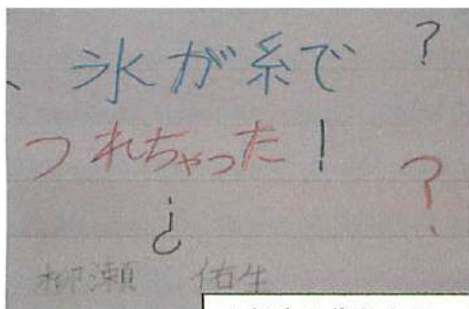 氷が糸で ?
つれちゃった! ?
¿
柳瀬 佑生